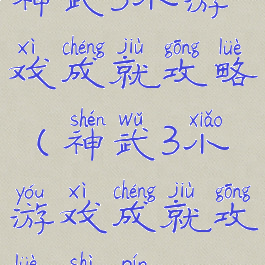 神武3小游
xì chéng jiù gōng lüè
戏成就攻略
shén wǔ xiǎo
(神武3小
yóu xì chéng jiù gōng
游戏成就攻
lüè shì pín